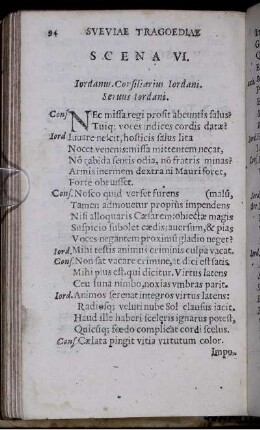 94 SVEVIAE TRAGOEDIAE
SCENA VI.
Iordanus. Consiliarius Iordani.
Seruus Iordani.
Cons. NEc missa regi prosit abeuntis salus?
Tuiq; voces indices cordis datæ?
Iord. latere nescit, hosticis salus lita
Nocet venenis: missa mittentem necat,
Nõ tabida sentis odia, nõ fratris minas?
Armis inermem dextra ni Mauri foret,
Forte obruisset.
Cons. Nosco quid verset furens (malũ,
Tamen admouetur propius impendens
Nisi alloquaris Cæsarem: obiectæ magis
Suspicio subolet cædis; auersum, & pias
Voces negantem proximi gladio neget?
Iord. Mihi testis animus criminis culpa vacat.
Cons. Non sat vacare crimine, at dici est satis.
Mihi pius est, qui dicitur. Virtus latens
Ceu funa nimbo, noxias vmbras parit.
Iord. Animos serenat integros virtus latens:
Radiosq; velut nube Sol clausus iacit.
Haud ille haberi sceleris ignarus potest,
Quicũq; fœdo complicat cordi scelus.
Cons. Cælata pingit vitia virtutum color.
Impu-